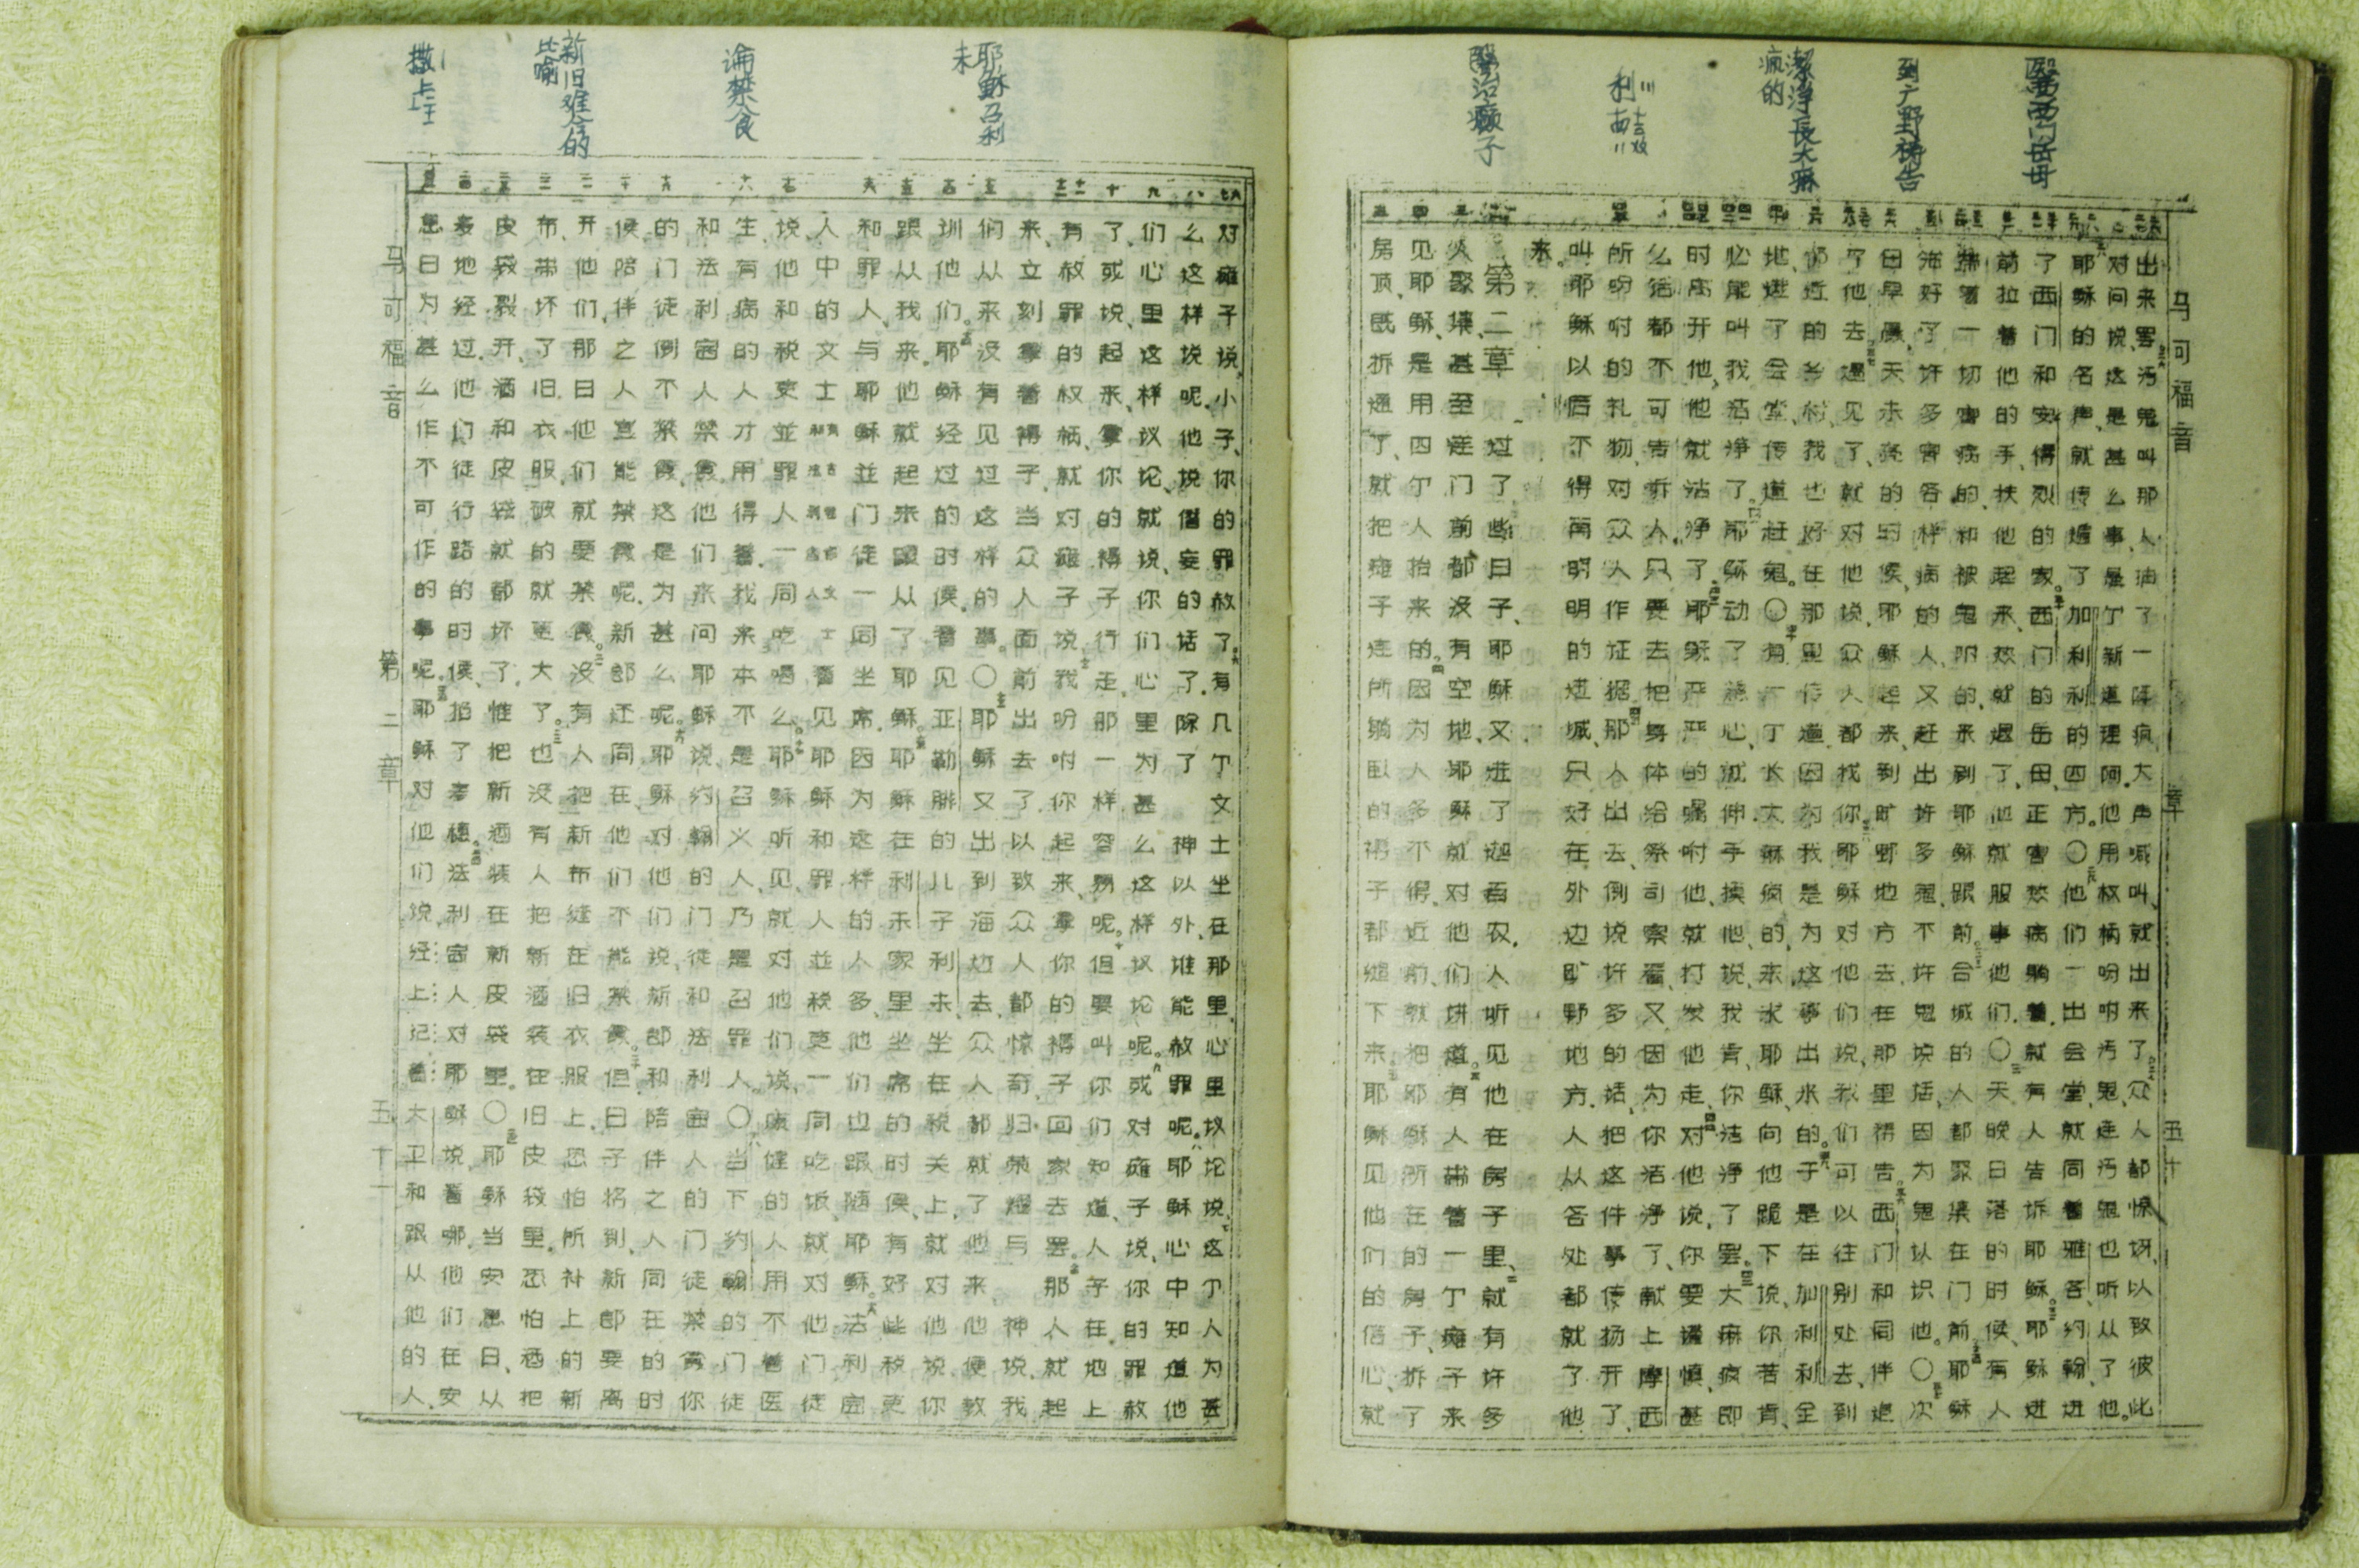 醫西門岳母
到广野祷告
潔淨長大麻疯的
醫治癱子
马可福音 章 五十
出来害污鬼叫那人抽了一阵疯大声喊叫、就出来了。众人都惊讶、以致彼此
对问说、这是甚么事、是个新道理阿。他用权柄吩咐污鬼、连污鬼也听从了他。
耶稣的名声、就传遍了加利利的四方。〇他们一出会堂、就同着雅各约翰、进
了西门和安得烈的家。西门的岳母正害热病躺着、就有人告诉耶稣。耶稣进
前拉着他的手、扶他起来、热就退了、他就服事他们。〇天晚日落的时候、有人
带着一切害病的、和被鬼附的、来到耶稣跟前。合城的人都聚集在门前。耶稣
治好了许多害各样病的人、又赶出许多鬼、不许鬼说话、因为鬼认识他。〇次
日早晨、天未亮的时候、耶稣起来、到旷野地方去、在那里祷告。西门和同伴追
了他去、遇见了、就对他说、众人都找你。耶稣对他们说、我们可以往别处去、到
邻近的乡村、我也好在那里传道、因为我是为这事出来的。于是在加利利全
地、进了会堂、传道赶鬼。〇有一个长大麻疯的、来求耶稣、向他跪下说、你若肯、
必能叫我洁净了。耶稣动了慈心、就伸手摸他、说、我肯、你洁净了罢。大麻疯即
时离开他、他就洁净了。耶稣严严的嘱咐他、就打发他走、对他说、你要谨慎、甚
么话都不可告诉人、只要去把身体给祭司察看、又因为你洁净了、献上摩西
所吩咐的礼物、对众人作证据。那人出去、倒说许多的话、把这件事传扬开了、
叫耶稣以后不得再明明的进城、只好在外边旷野地方、人从各处都就了他
来。
第二章
过了些日子、耶稣又进了迦百农。人听见他在房子里、就有许多
人聚集、甚至连门前都没有空地、耶稣就对他们讲道。有人带着一个瘫子来
见耶稣、是用四个人抬来的。因为人多、不得近前、就把耶稣所在的房子、拆了
房顶、既拆通了、就把瘫子连所躺卧的褥子都缒下来。耶稣见他们的信心、就
耶穌召利未
论禁食
新旧难合的比喻
对瘫子说、小子、你的罪赦了。有几个文士坐在那里、心里议论说、这个人为甚
么这样说呢、他说僭妄的话了、除了 神以外、谁能赦罪呢。耶稣心中知道他
们心里这样议论、就说、你们心里为甚么这样议论呢。或对瘫子说、你的罪赦
了、或说、起来、拿你的褥子行走、那一样容易呢。但要叫你们知道、人子在地上
有赦罪的权柄、就对瘫子说、我吩咐你起来、拿你的褥子回家去罢。那人就起
来、立刻拿着褥子、当众人面前出去了、以致众人都惊奇、归荣耀与 神说、我
们从来没有见过这样的事。〇耶稣又出到海边去、众人都就了他来、他便教
训他们。耶稣经过的时候、看见亚勒腓的儿子利未、坐在税关上、就对他说、你
跟从我来、他就起来跟从了耶稣。耶稣在利未家里坐席的时候、有好些税吏
和罪人、与耶稣並门徒一同坐席、因为这样的人多、他们也跟随耶稣。法利
人中的文士看见耶稣和罪人並税吏一同吃饭、就对他门徒
说、他和税吏並罪人一同吃喝么。耶稣听见、就对他们说、康健的人用不着医
生、有病的人才用得着。我来本不是召义人、乃是召罪人。〇当下约翰的门徒
和法利赛人禁食。他们来问耶稣说、约翰的门徒和法利赛人的门徒禁食、你
的门徒倒不禁食、这是为甚么呢。耶稣对他们说、新郎和陪伴之人同在的时
候、陪伴之人岂能禁食呢。新郎还同在、他们不能禁食。但日子将到、新郎要离
开他们、那日他们就要禁食。没有人把新布缝在旧衣服上、恐怕所补上的新
布、带坏了旧衣服、破的就更大了。也没有人把新酒装在旧皮袋里、恐怕酒把
皮袋裂开、酒和皮袋就都坏了、惟把新酒装在新皮袋里。〇耶稣当安息日、从
麦地经过、他们徒行路的时候、掐了麦穗。法利赛人对耶稣说、看哪、他们在安
息日为甚么作不可作的事呢。耶稣对他们说、经上记着大卫和跟从他的人、
马可福音 第二章 五十一